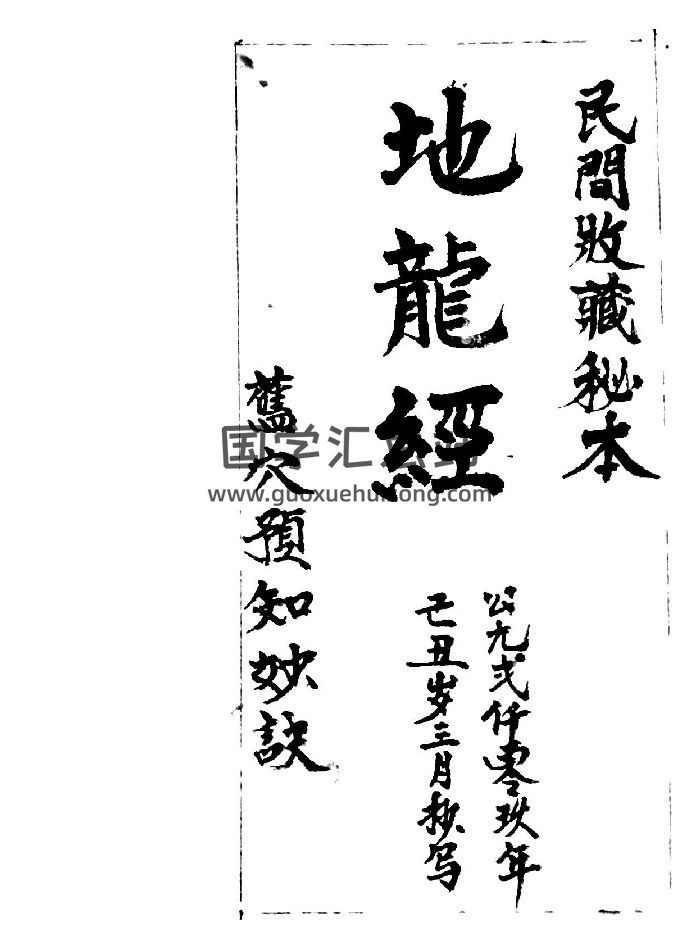 民間收藏秘本
地龍經
公元弍仟零玖年
己丑岁三月抄写
舊穴預知妙訣
国学汇
www.guoxuehuitong.com